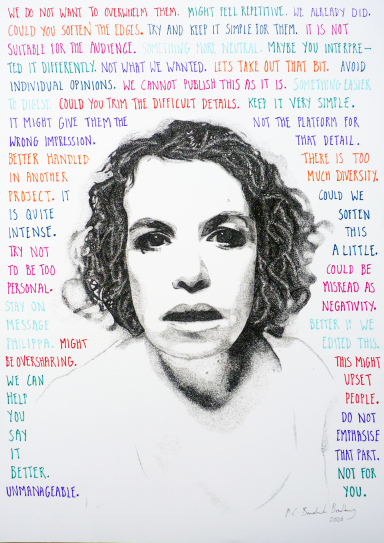 WE DO NOT WANT TO OVERWHELM THEM. MIGHT FEEL REPETITIVE. WE ALREADY DID.
COULD YOU SOFTEN THE EDGES. TRY AND KEEP IT SIMPLE FOR THEM. IT IS NOT
SUITABLE FOR THE AUDIENCE. SOMETHING MORE NEUTRAL. MAYBE YOU INTERPRE-
TED IT DIFFERENTLY. NOT WHAT WE WANTED. LETS TAKE OUT THAT BIT. AVOID
INDIVIDUAL OPINIONS. WE CANNOT PUBLISH THIS AS IT IS. SOMETHING EASIER
TO DIGEST. COULD YOU TRIM THE DIFFICULT DETAILS. KEEP IT VERY SIMPLE.
IT MIGHT GIVE THEM THE NOT THE PLATFORM FOR
WRONG IMPRESSION. THAT DETAIL.
BETTER HANDLED THERE IS TOO
IN ANOTHER MUCH DIVERSITY.
PROJECT. IT COULD WE
IS QUITE SOFTEN
INTENSE. THIS
TRY NOT A LITTLE.
TO BE TOO COULD BE
PERSONAL. MISREAD AS
STAY ON NEGATIVITY.
MESSAGE BETTER IF WE
PHILIPPA. MIGHT EDITED THIS.
BE OVERSHARING. THIS MIGHT
WE CAN UPSET
HELP PEOPLE.
YOU DO NOT
SAY EMPHASISE
IT THAT PART.
BETTER. NOT FOR
UNMANAGEABLE. YOU.